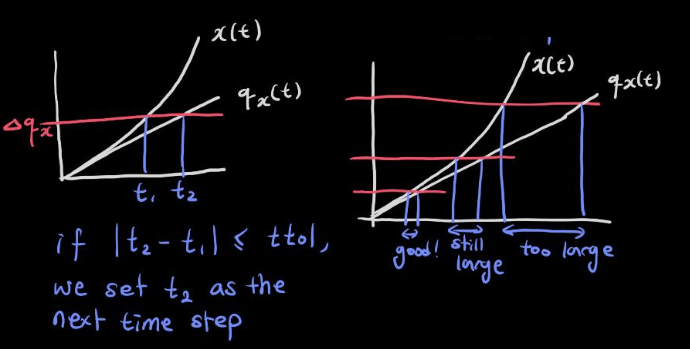 x(t)
q_x(t)
Δq_x
t₁ t₂
if |t₂ - t₁| ≤ ttol,
we set t₂ as the
next time step
x(t)
q_x(t)
good! still large too large